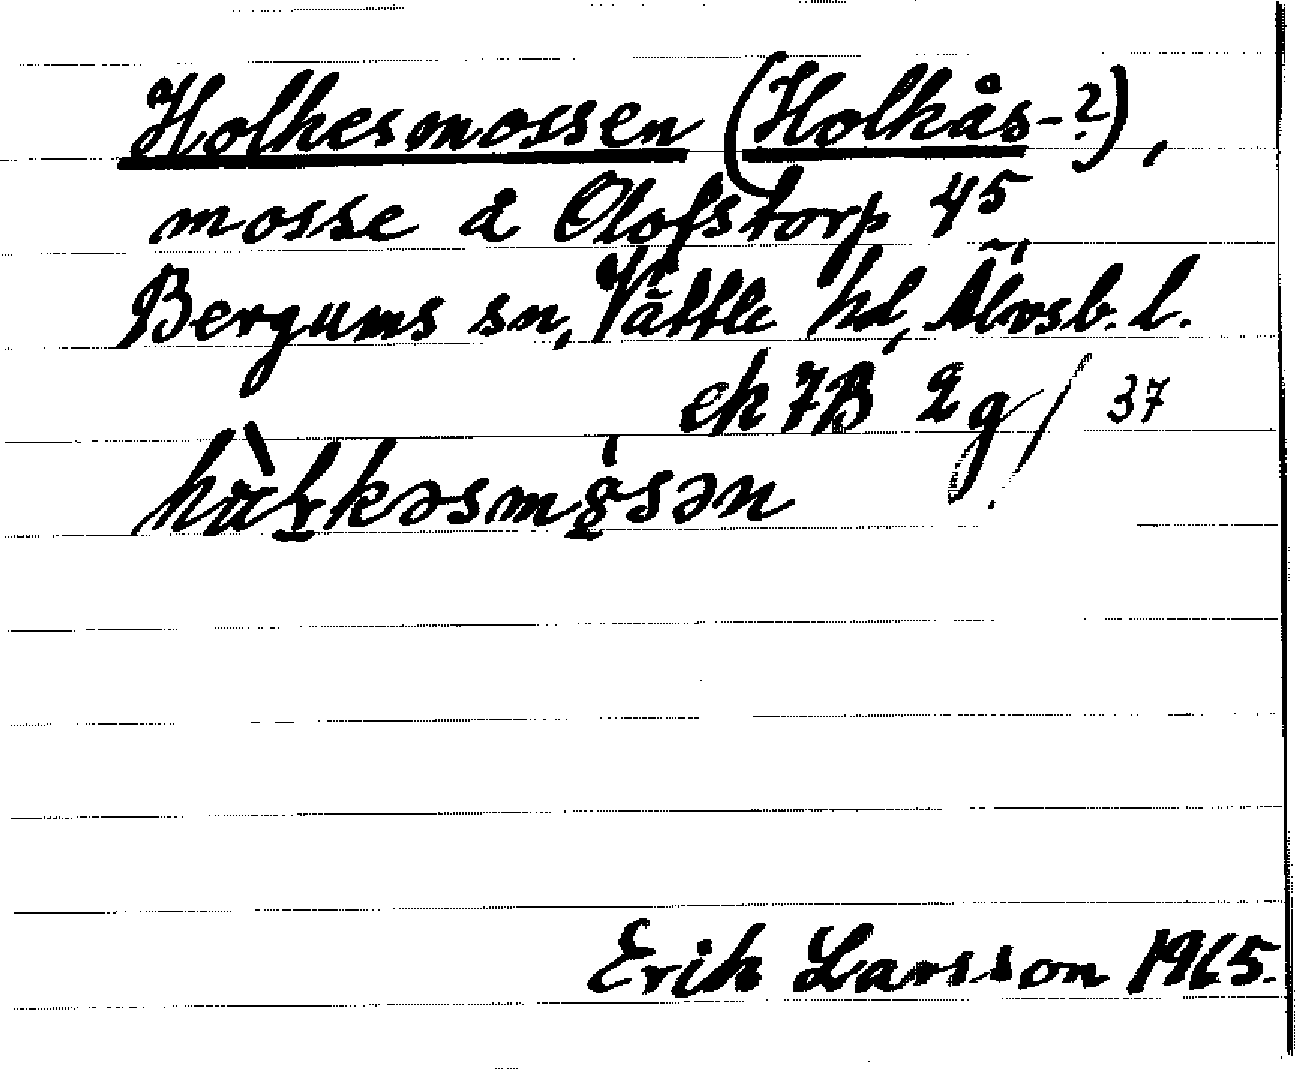 Holkesmossen (Holkås-?),
mosse å Olofstorp 4⁵
Bergums sn, Vättle hd, Älvsb. l.
ek 7B 2g / 37
Erik Larsson 1965.